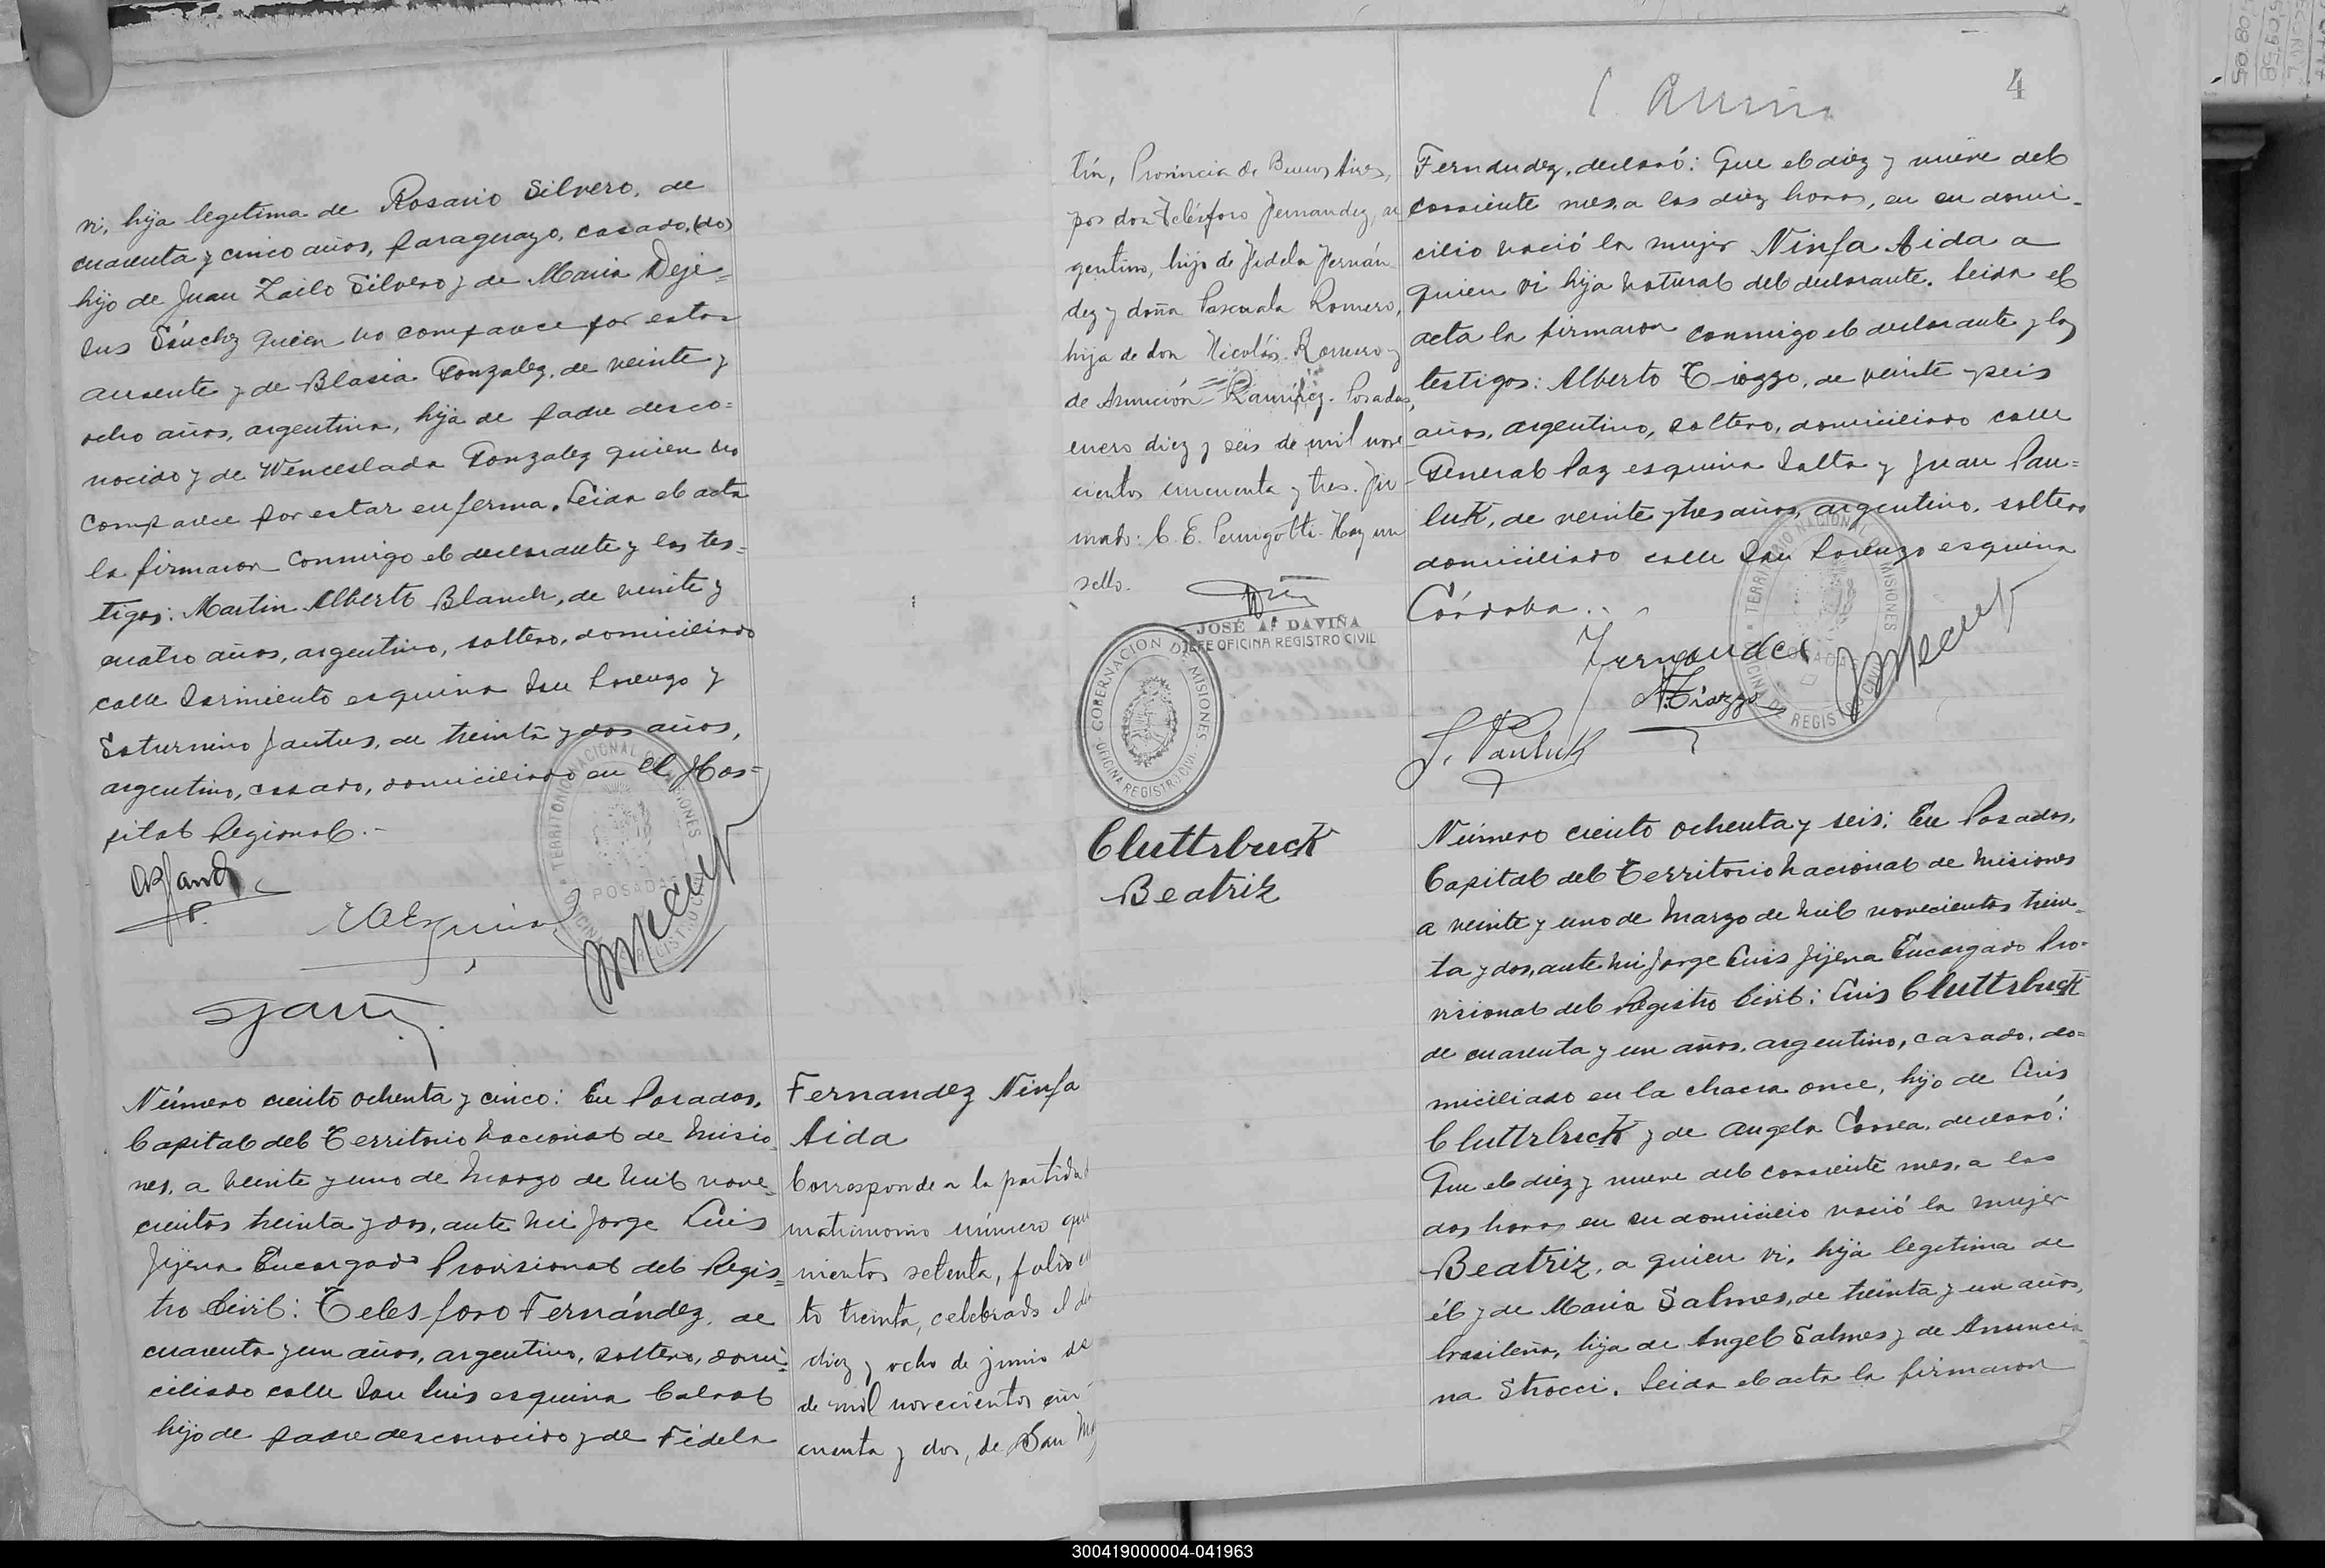 vi, hija legitima de Rosario Silvero, de
cuarenta y cinco años, paraguayo, casado, (do)
hijo de Juan Zoilo Silvero y de Maria Deje=
sus Sánchez quien no comparece por estar
ausente y de Blasia Gonzalez, de veinte y
ocho años, argentina, hija de padre desco=
nocido y de Wenceslada Gonzalez quien no
comparece por estar enferma. Leida el acta
la firmaron conmigo el declarante y los tes=
tigos: Martin Alberto Blanch, de veinte y
cuatro años, argentino, soltero, domiciliado
calle Sarmiento esquina San Lorenzo y
Saturnino Jantus, de treinta y dos años,
argentino, casado, domiciliado en el Hos=
pital Regional.-
TERRITORIO NACIONAL DE MISIONES
POSADAS
OFICINA DE REGISTRO CIVIL
Número ciento ochenta y cinco: En Posadas,
Capital del Territorio Nacional de Misio
nes, a veinte y uno de Marzo de mil nove_
cientos treinta y dos, ante mi Jorge Luis
Jijena Encargado Provisional del Regis=
tro Civil: Telesforo Fernández, de
cuarenta y un años, argentino, soltero, domi=
ciliado calle San Luis esquina Cabral
hijo de padre desconocido y de Fidela
Fernandez Ninfa
Aida
Corresponde a la partida
matrimonio número qui
nientos setenta, folio
to treinta, celebrado el
diez y ocho de junio de
de mil novecientos cin
cuenta y dos, de San
4
tín, Provincia de Buenos Aires,
por don Telésforo Fernandez, ar
gentino, hijo de Fidela Fernán
dez y doña Pascuala Romero,
hija de don Nicolás Romero y
de Asunción Ramirez. Posadas,
enero diez y seis de mil nove
cientos cincuenta y tres. Fir
mado: C. E. Perrigotti. Hay un
sello.
JOSÉ A. DAVIÑA
JEFE OFICINA REGISTRO CIVIL
GOBERNACION DE MISIONES
OFICINA REGISTRO CIVIL
Cluttrbuck
Beatriz
Fernandez, declaró: Que el diez y nueve del
corriente mes, a las diez horas, en su domi-
cilio nació la mujer Ninfa Aida a
quien vi hija natural del declarante. Leida el
acta la firmaron conmigo el declarante y los
testigos: Alberto Tiozzo, de veinte y seis
años, argentino, soltero, domiciliado calle
General Paz esquina Salta y Juan Pau=
luk, de veinte y tres años, argentino, soltero
domiciliado calle San Lorenzo esquina
Córdoba..
Fernandez
A. Tiozzo
J. Pauluk
TERRITORIO NACIONAL DE MISIONES
POSADAS
OFICINA DE REGISTRO CIVIL
Número ciento ochenta y seis: En Posadas,
Capital del Territorio Nacional de Misiones
a veinte y uno de Marzo de mil novecientos trein_
ta y dos, ante mi Jorge Luis Jijena Encargado Pro-
visional del Registro Civil: Luis Cluttrbuck
de cuarenta y un años, argentino, casado, do=
miciliado en la chacra once, hijo de Luis
Cluttrbuck y de Angela Correa, declaró:
Que el diez y nueve del corriente mes, a las
dos horas en su domicilio nació la mujer
Beatriz, a quien vi, hija legitima de
él y de Maria Salmes, de treinta y un años,
brasileña, hija de Angel Salmes y de Anuncia_
na Strocci. Leida el acta la firmaron
300419000004-041963